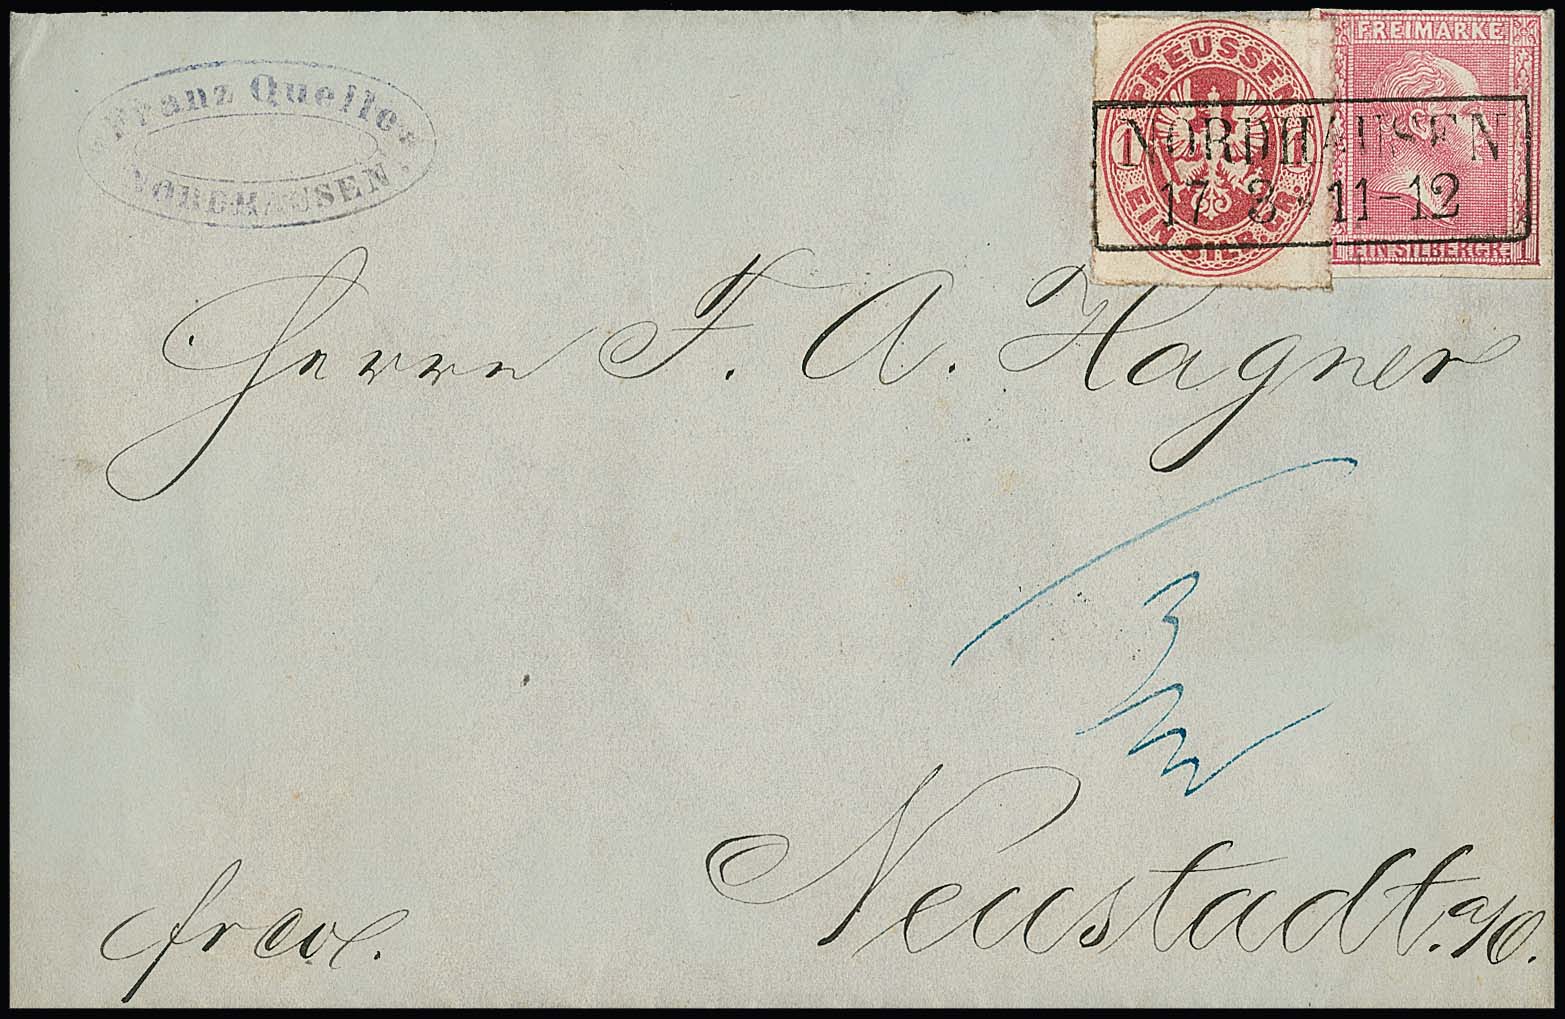 Franz Quelle
NORDHAUSEN.
PREUSSEN
1 1
EIN SILB. GR.
FREIMARKE
1 EIN SILBERGR. 1
NORDHAUSEN
17 3 * 11-12
Herrn F. A. Hagner
Neustadt. a/O.